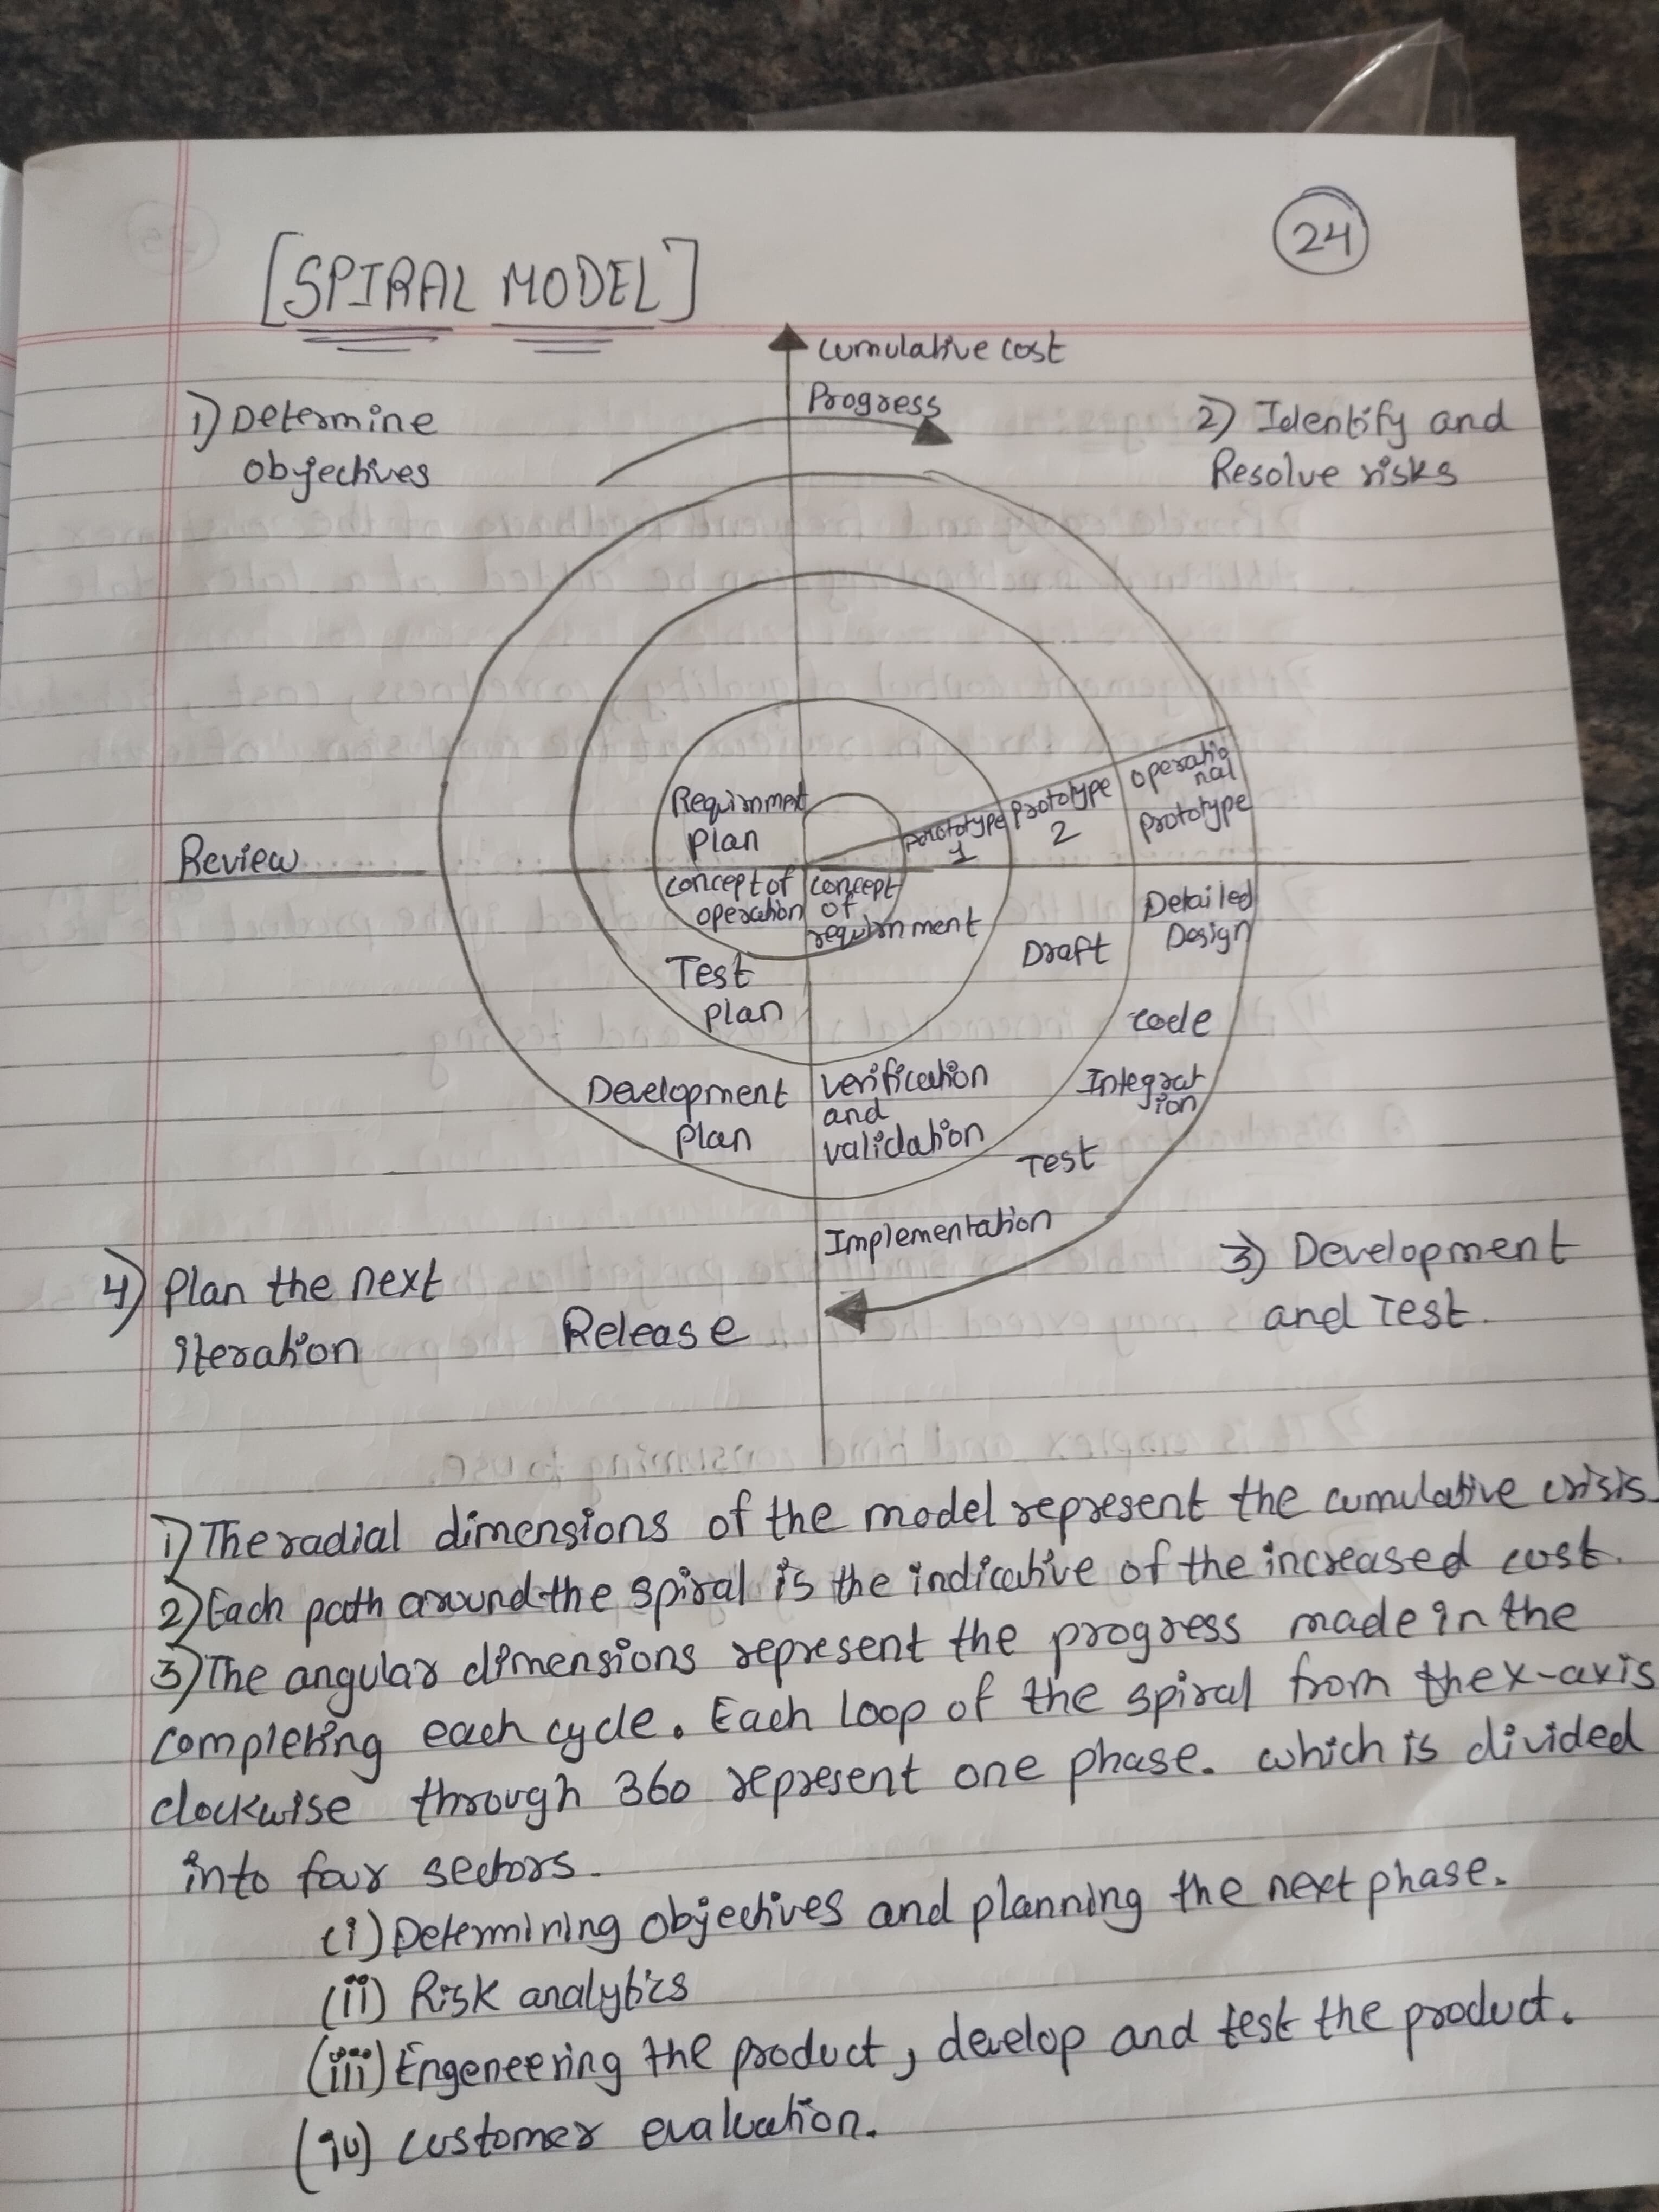 24
[SPIRAL MODEL]
Cumulative cost
Progress
1) Determine
objectives
2) Identify and
Resolve risks
Requirnment
plan
prototype
1
prototype
2
operatio
nal
prototype
Review
concept of
operation
concept
of
requirnment
Test
plan
Draft
Detailed
Design
code
Integrat
ion
Development
plan
verification
and
validation
Test
Implementation
4) Plan the next
iteration
Release
3) Development
and Test.
1) The radial dimensions of the model represent the cumulative crisis.
2) Each path around the spiral is the indicative of the increased cost.
3) The angular dimensions represent the progress made in the
completing each cycle. Each loop of the spiral from the x-axis
clockwise through 360 represent one phase. which is divided
into four sectors.
(i) Determining objectives and planning the next phase.
(ii) Risk analytics
(iii) Engeneering the product, develop and test the product.
(iv) customer evaluation.